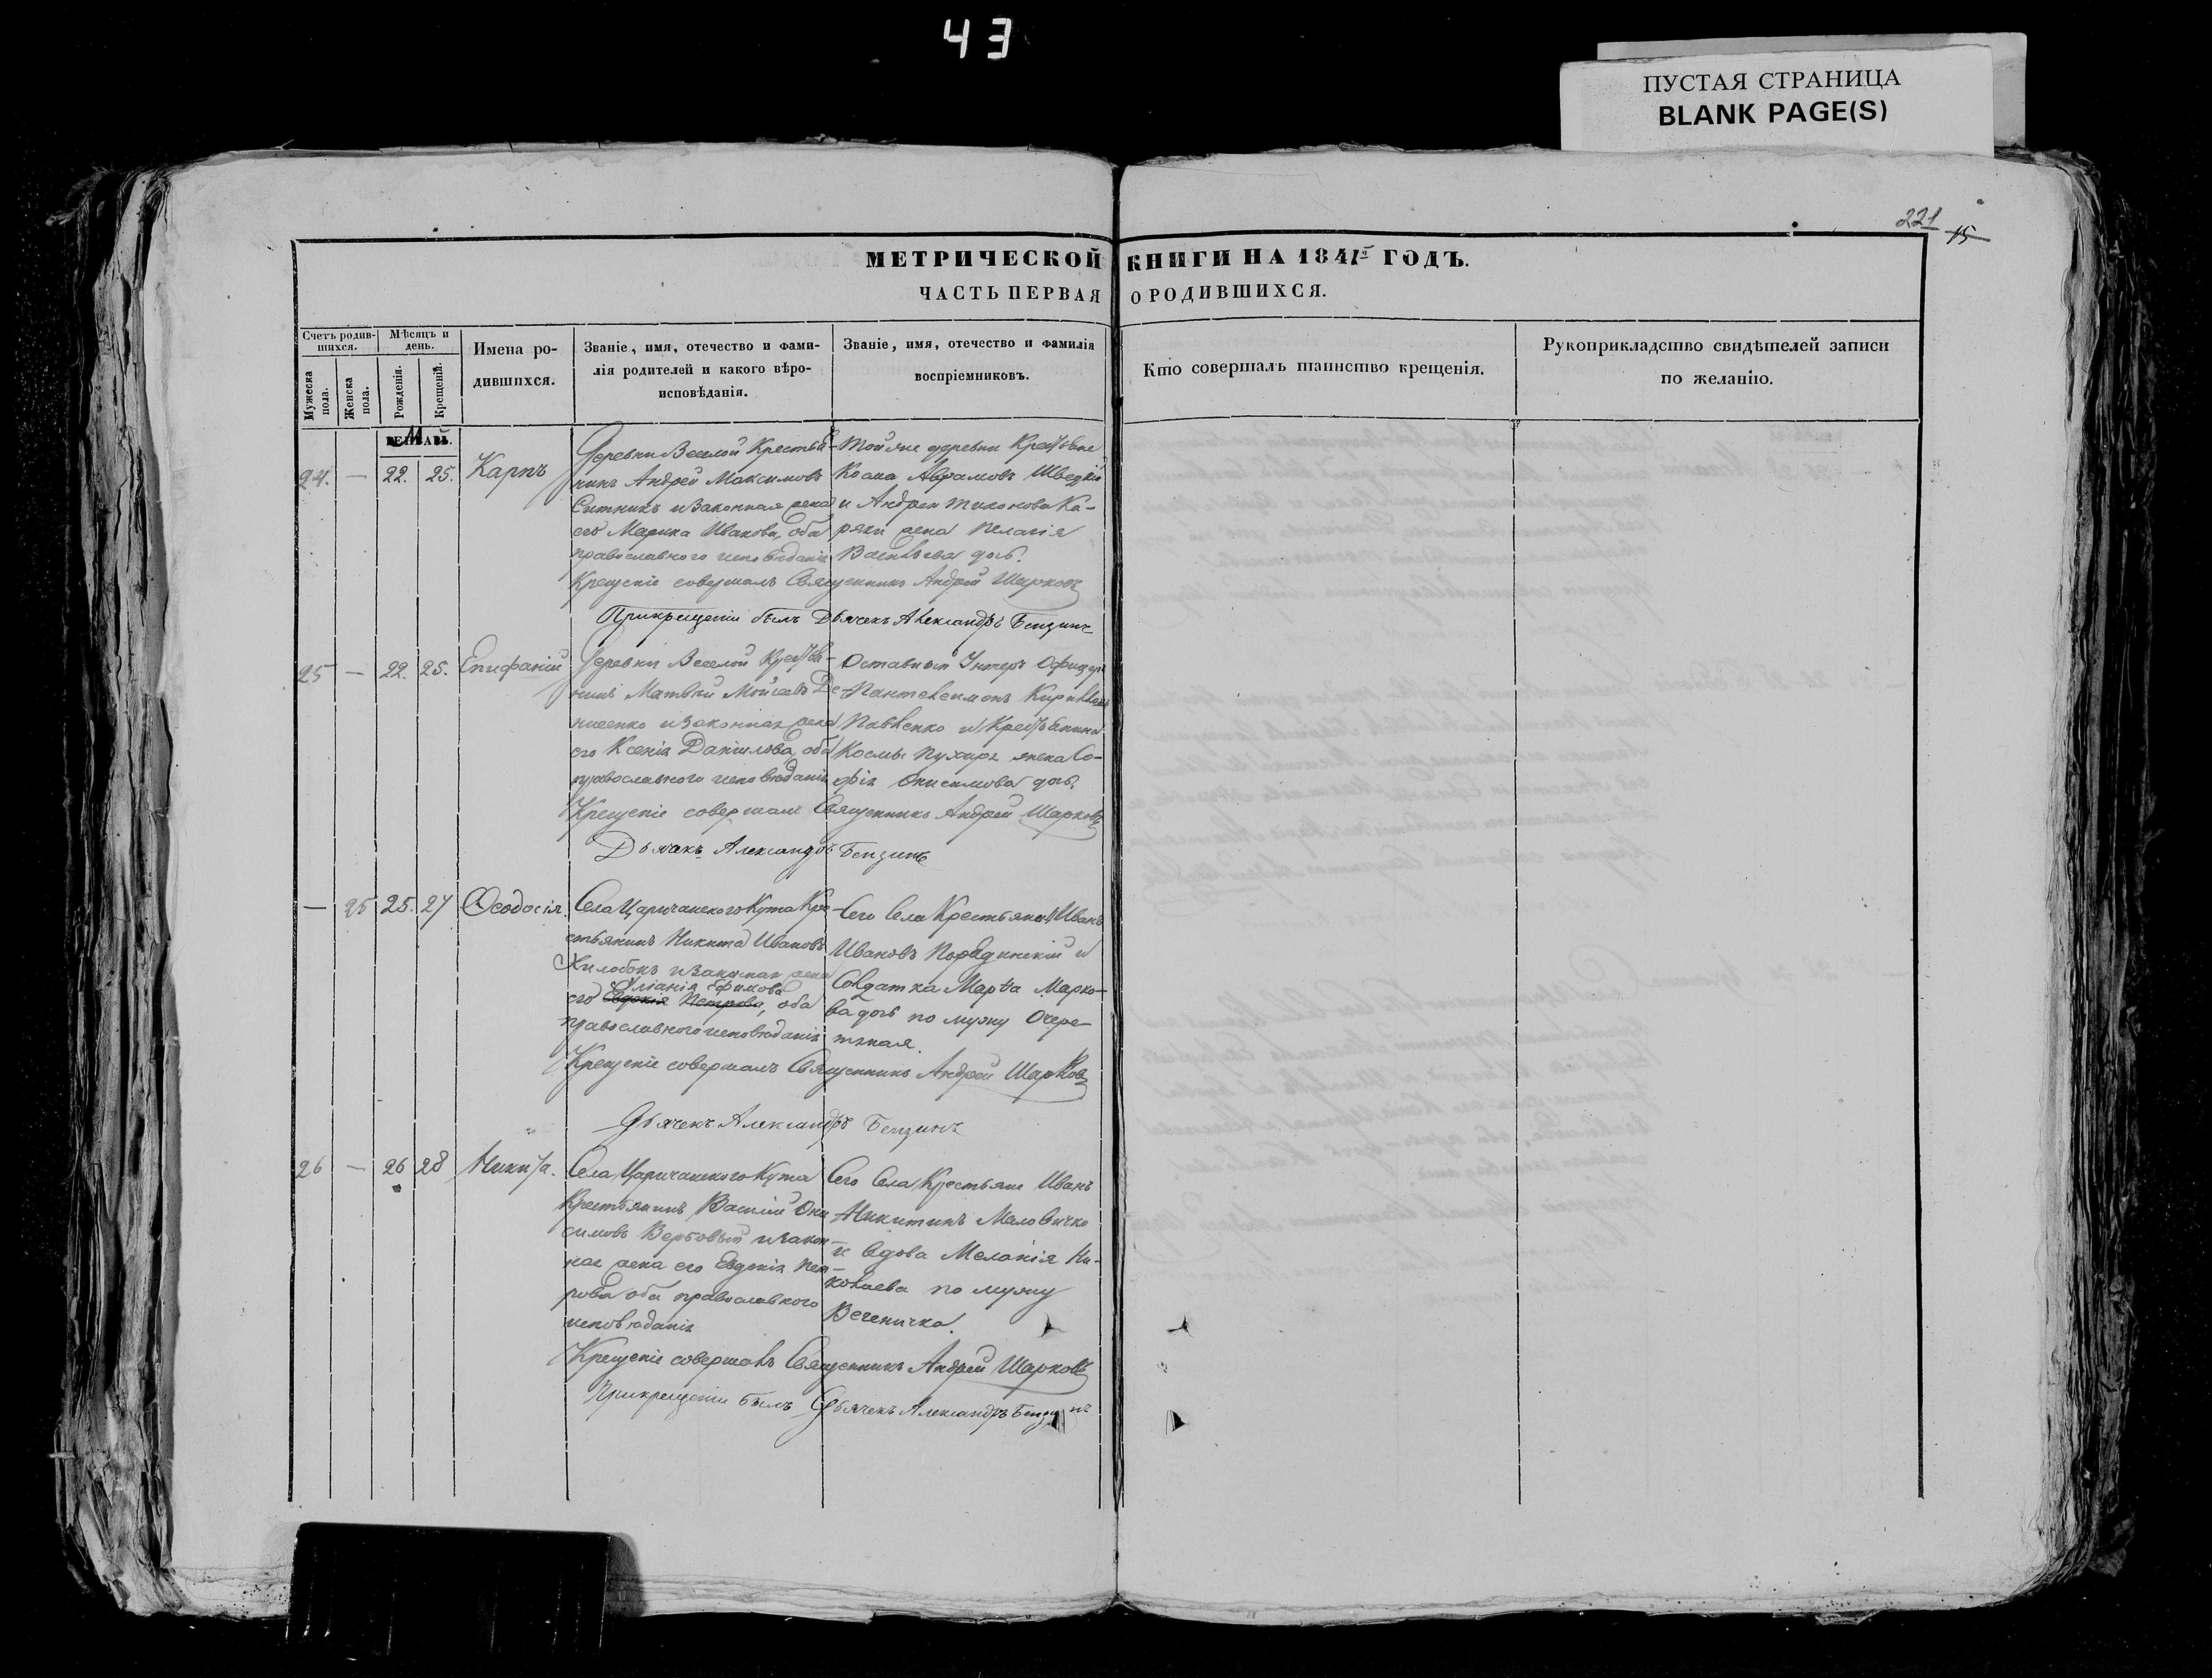 43
ПУСТАЯ СТРАНИЦА
BLANK PAGE(S)
221
15
МЕТРИЧЕСКОЙ КНИГИ НА 1841й ГОДЪ.
ЧАСТЬ ПЕРВАЯ О РОДИВШИХСЯ.
Счетъ родив-
шихся.
Мужеска
пола.
Женска
пола.
Мѣсяцъ и
день.
Рожденія.
Крещенія.
Имена ро-
дившихся.
Званіе, имя, отечество и фами-
лія родителей и какого вѣро-
исповѣданія.
Званіе, имя, отечество и фамилія
воспріемниковъ.
Кто совершалъ таинство крещенія.
Рукоприкладство свидѣтелей записи
по желанію.
24. — 22. 25. Карпъ
Деревни Веселой Крестья-
нинъ Андрей Максимовъ
Ситникъ и законная жена
его Марина Иванова, оба
православного исповѣданія
Той же деревни Крестьяне
Козма Аврамовъ Шведкій
и Андрея Тихонова Ка-
ряки жена Пелагія
Васильева дочь.
Крещеніе совершалъ Священникъ Андрей Шарковъ
При крещеніи былъ Дьячекъ Александръ Бензинъ
25 — 22. 25. Епифаній
Деревни Веселой Крестья-
нинъ Матвѣй Мойсеевъ Де-
нисенко и законная жена
его Ксенія Даніилова, оба
православного исповѣданія
Отставный Унтеръ Офицеръ
Пантелеимонъ Кириллова
Павленко и Крестьянина
Космы Пухиря жена Со-
фія Онисимова дочь.
Крещеніе совершалъ Священникъ Андрей Шарковъ
Дьячекъ Александръ Бензинъ
— 25 25. 27 Ѳеодосія.
Села Царичанского Кута Кре-
стьянинъ Никита Ивановъ
Хилобокъ и законная жена
Уліанія Ефимова
его Евдокія Петрова, оба
православного исповѣданія
Сего Села Крестьянинъ Иванъ
Ивановъ и
Солдатка Марѳа Марко-
ва дочь по мужу Очере-
тяная.
Крещеніе совершалъ Священникъ Андрей Шарковъ
Дьячекъ Александръ Бензинъ
26 — 26 28 Никита.
Села Царичанского Кута
Крестьянинъ Василій Они
симовъ Вербовый и закон-
ная жена его Евдокія Пет-
рова оба православного
исповѣданія
Сего Села Крестьяне Иванъ
Никитинъ Маловичко
и вдова Меланія Ни-
колаева по мужу
Веченичка.
Крещеніе совершалъ Священникъ Андрей Шарковъ
При крещеніи былъ Дьячекъ Александръ Бензинъ